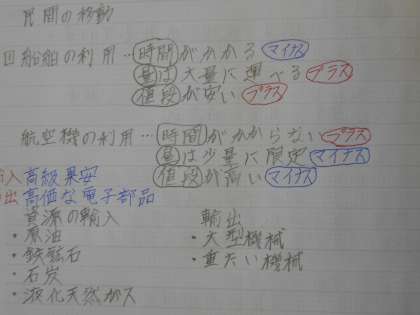 民間の移動
回船舶の利用…時間がかかる マイナス
量は大量に運べる プラス
値段が安い プラス
航空機の利用…時間がかからない プラス
量は少量に限定 マイナス
値段が高い マイナス
入 高級果実
出 高価な電子部品
資源の輸入 輸出
・原油 ・大型機械
・鉄鉱石 ・重たい機械
・石炭
・液化天然ガス